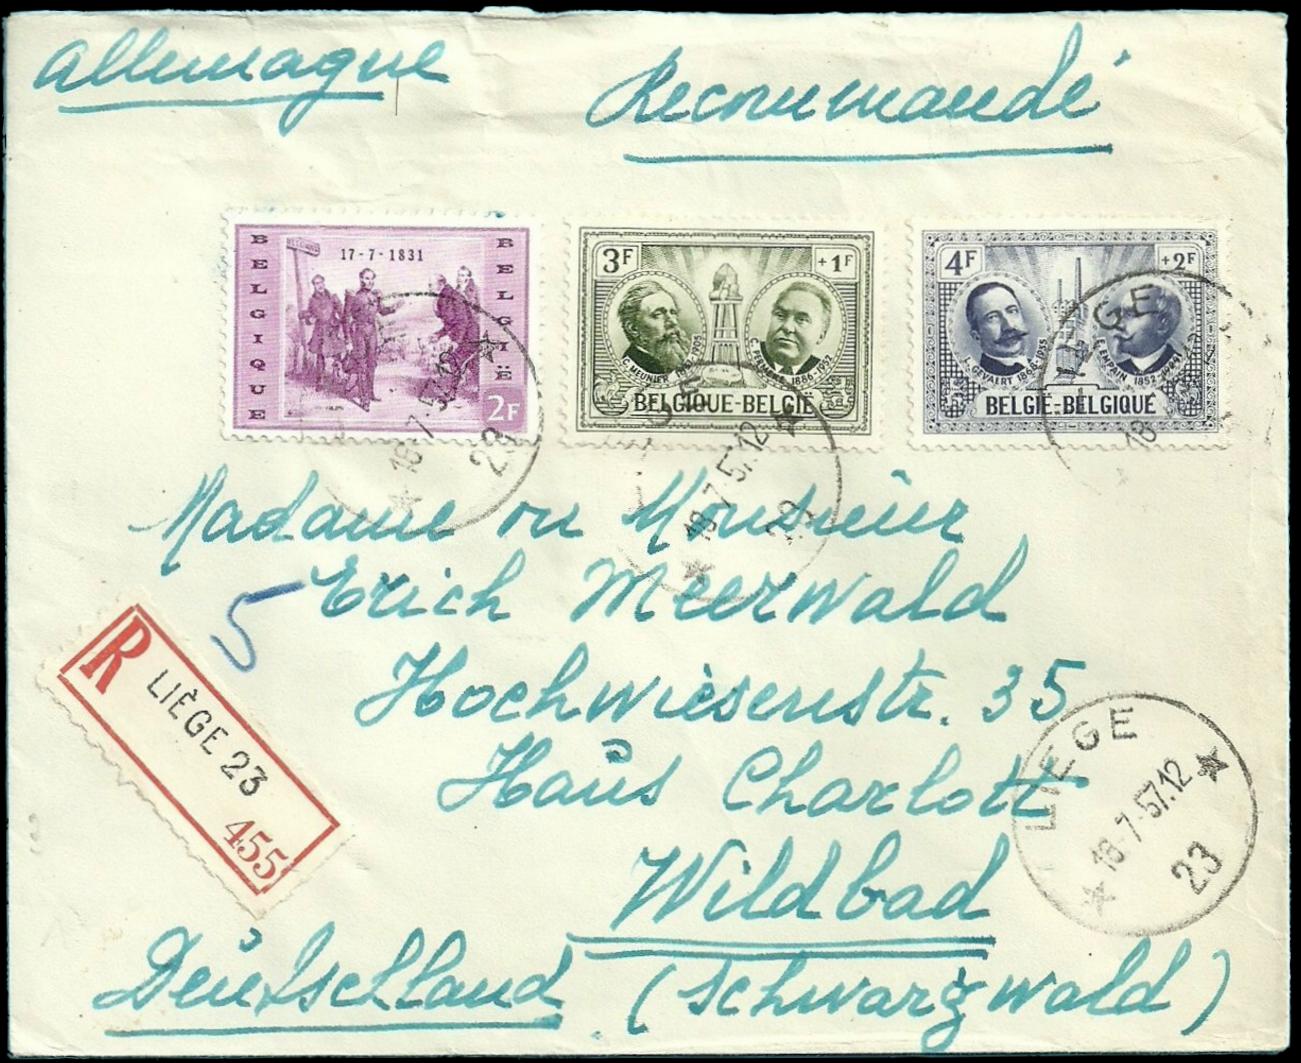 Allemagne
Recommandé
BELGIQUE
17-7-1831
BELGIË
2F
3F
+1F
C. MEUNIER
C. PERMEKE 1886-1952
BELGIQUE-BELGIË
4F
+2F
L. GEVAERT 1868-1935
E. EMPAIN 1852-
BELGIË-BELGIQUE
18-7-57.12
23
18-7-57.12
18
Madame ou Monsieur
Erich Meerwald
5
Hochwiesenstr. 35
Haus Charlott
Wildbad
Deutschland (Schwarzwald)
R LIÈGE 23
455
LIEGE
18-7-57.12
23